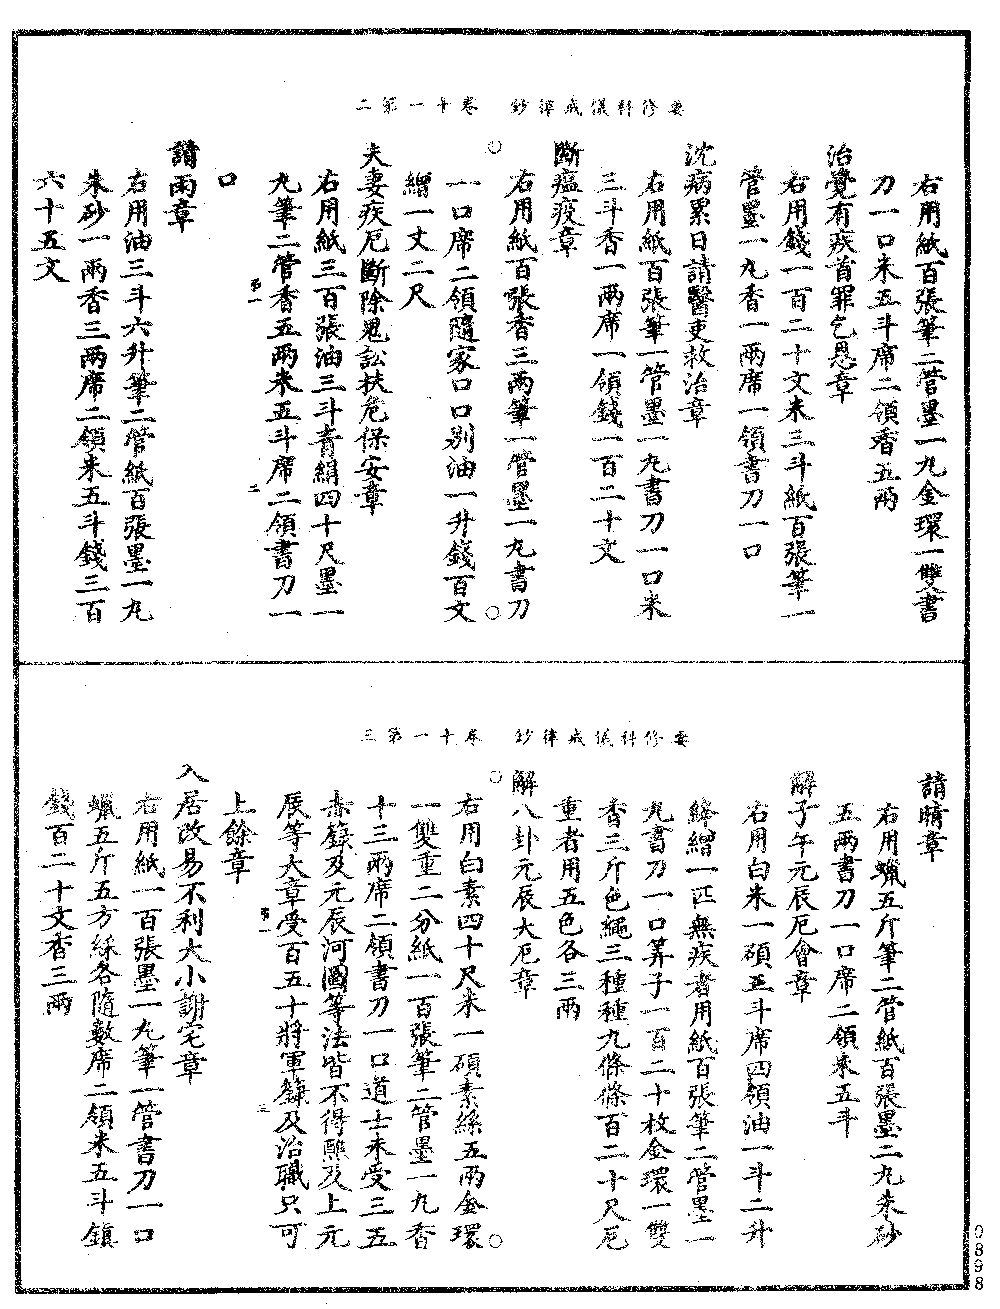 要修科儀戒律鈔 卷十一第二
右用紙百張筆二管墨一丸金環一雙書
刀一口米五斗席二領香五兩
治覺有疾首罪乞恩章
右用錢一百二十文米三斗紙百張筆一
管墨一丸香一兩席一領書刀一口
沈病累日請醫吏救治章
右用紙百張筆一管墨一丸書刀一口米
三斗香一兩席一領錢一百二十文
斷瘟疫章
右用紙百張香三兩筆一管墨一丸書刀
一口席二領隨家口口別油一升錢百文
繒一丈二尺
夫妻疾厄斷除鬼訟扶危保安章
右用紙三百張油三斗青絹四十尺墨一
丸筆二管香五兩米五斗席二領書刀一
口
請雨章
右用油三斗六升筆二管紙百張墨一丸
朱砂一兩香三兩席二領米五斗錢三百
六十五文
要修科儀戒律鈔 卷十一第三
請晴章
右用蠟五斤筆二管紙百張墨二丸朱砂
五兩書刀一口席二領米五斗
解子午元辰厄會章
右用白米一碩五斗席四領油一斗二升
絳繒一匹無疾者用紙百張筆二管墨一
丸書刀一口筭子一百二十枚金環一雙
香三斤色繩三種種九條條百二十尺厄
重者用五色各三兩
解八卦元辰大厄章
右用白素四十尺米一碩素絲五兩金環
一雙重二分紙一百張筆二管墨一丸香
十三兩席二領書刀一口道士未受三五
赤籙及元辰河圖等法皆不得熙及上元
辰等大章受百五十將軍籙及治職只可
上餘章
入居改易不利大小謝宅章
右用紙一百張墨一丸筆一管書刀一口
蠟五斤五方綵各隨數席二領米五斗鎮
錢百二十文香三兩
第一
二
第一
三
0898